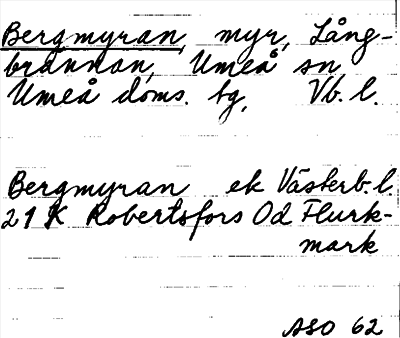 Bergmyran, myr, Lång-
brännan, Umeå sn,
Umeå doms. tg, Vb. l.
Bergmyran ek Västerb. l.
21 K Robertsfors Od Flurk-
mark
ASO 62